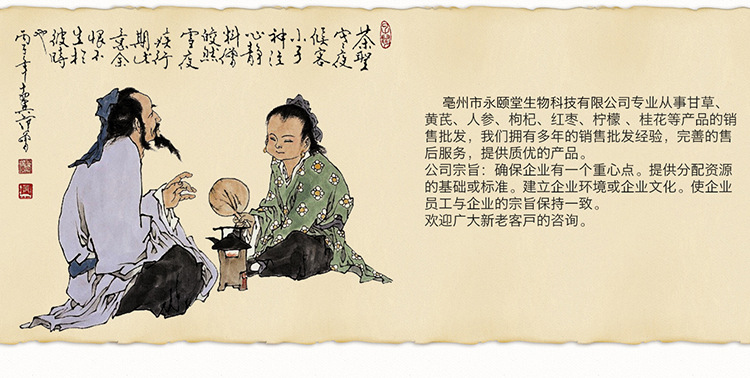 茶聖
寒夜
候客
小子
神注
心静
皎然
雪夜
疾行
期
意余
恨不
生於
彼時
也
亳州市永颐堂生物科技有限公司专业从事甘草、
黄芪、人参、枸杞、红枣、柠檬 、桂花等产品的销
售批发，我们拥有多年的销售批发经验，完善的售
后服务，提供质优的产品。
公司宗旨：确保企业有一个重心点。提供分配资源
的基础或标准。建立企业环境或企业文化。使企业
员工与企业的宗旨保持一致。
欢迎广大新老客戸的咨询。